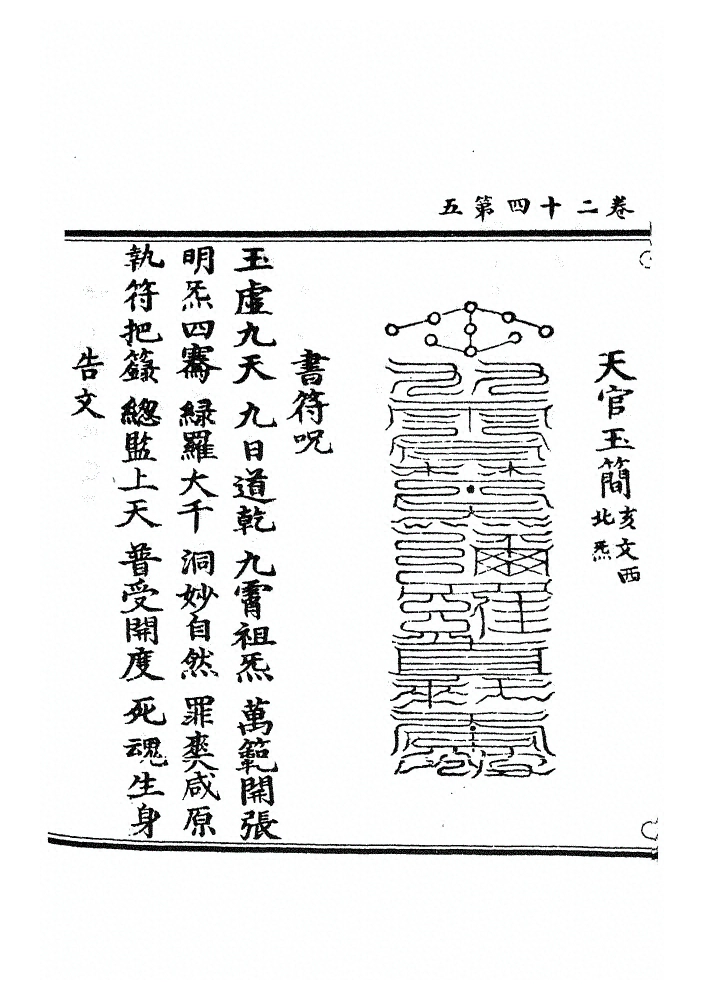 卷二十四第五
天官玉簡 亥文西北炁
書符呪
玉虛九天 九日道乾 九霄祖炁 萬範開張
明炁四騫 緑羅大千 洞妙自然 罪爽咸原
執符把籙 總監上天 普受開度 死魂生身
告文